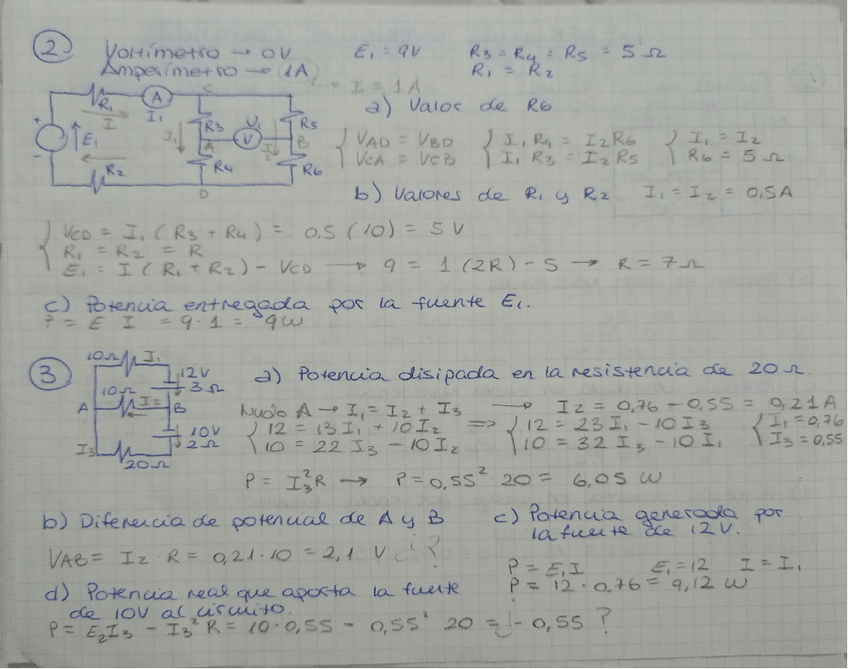 2
Voltímetro → 0V
E₁ = 9V
R3 = R4 = R5 = 5 Ω
Amperímetro → 1A
R₁ = R₂
→ I = 1A
a) Valor de R6
R₁ A C
I I₁
E₁ I₁ R3 V R5
A I₂ B
R₂ R4 R6
D
VAD = VBD
I₁ R4 = I2 R6
I₁ = I2
VCA = VCB
I₁ R3 = I2 R5
R6 = 5 Ω
b) Valores de R₁ y R2
I₁ = I2 = 0,5A
VCD = I₁ (R3 + R4) = 0,5 (10) = 5 V
R₁ = R2 = R
E₁ = I (R₁ + R2) - VCD → 9 = 1 (2R) - 5 → R = 7 Ω
c) Potencia entregada por la fuente E₁.
P = E I = 9·1 = 9W
3
10Ω I₁
12V
3Ω
10Ω I2
A B
10V
2Ω
I3
20Ω
a) Potencia disipada en la resistencia de 20 Ω.
Nudo A → I₁ = I2 + I3 → I2 = 0,76 - 0,55 = 0,21 A
12 = 13 I₁ + 10 I2 ⇒ 12 = 23 I₁ - 10 I3
I₁ = 0,76
10 = 22 I3 - 10 I2
10 = 32 I3 - 10 I₁
I3 = 0,55
P = I3² R → P = 0,55² · 20 = 6,05 W
b) Diferencia de potencial de A y B
VAB = I2 · R = 0,21·10 = 2,1 V ¿?
c) Potencia generada por
la fuente de 12V.
P = E₁ I E₁ = 12 I = I₁
P = 12 · 0,76 = 9,12 W
d) Potencia real que aposta la fuente
de 10V al circuito.
P = E2 I3 - I3² R = 10·0,55 - 0,55² 20 = ¿ - 0,55 ?